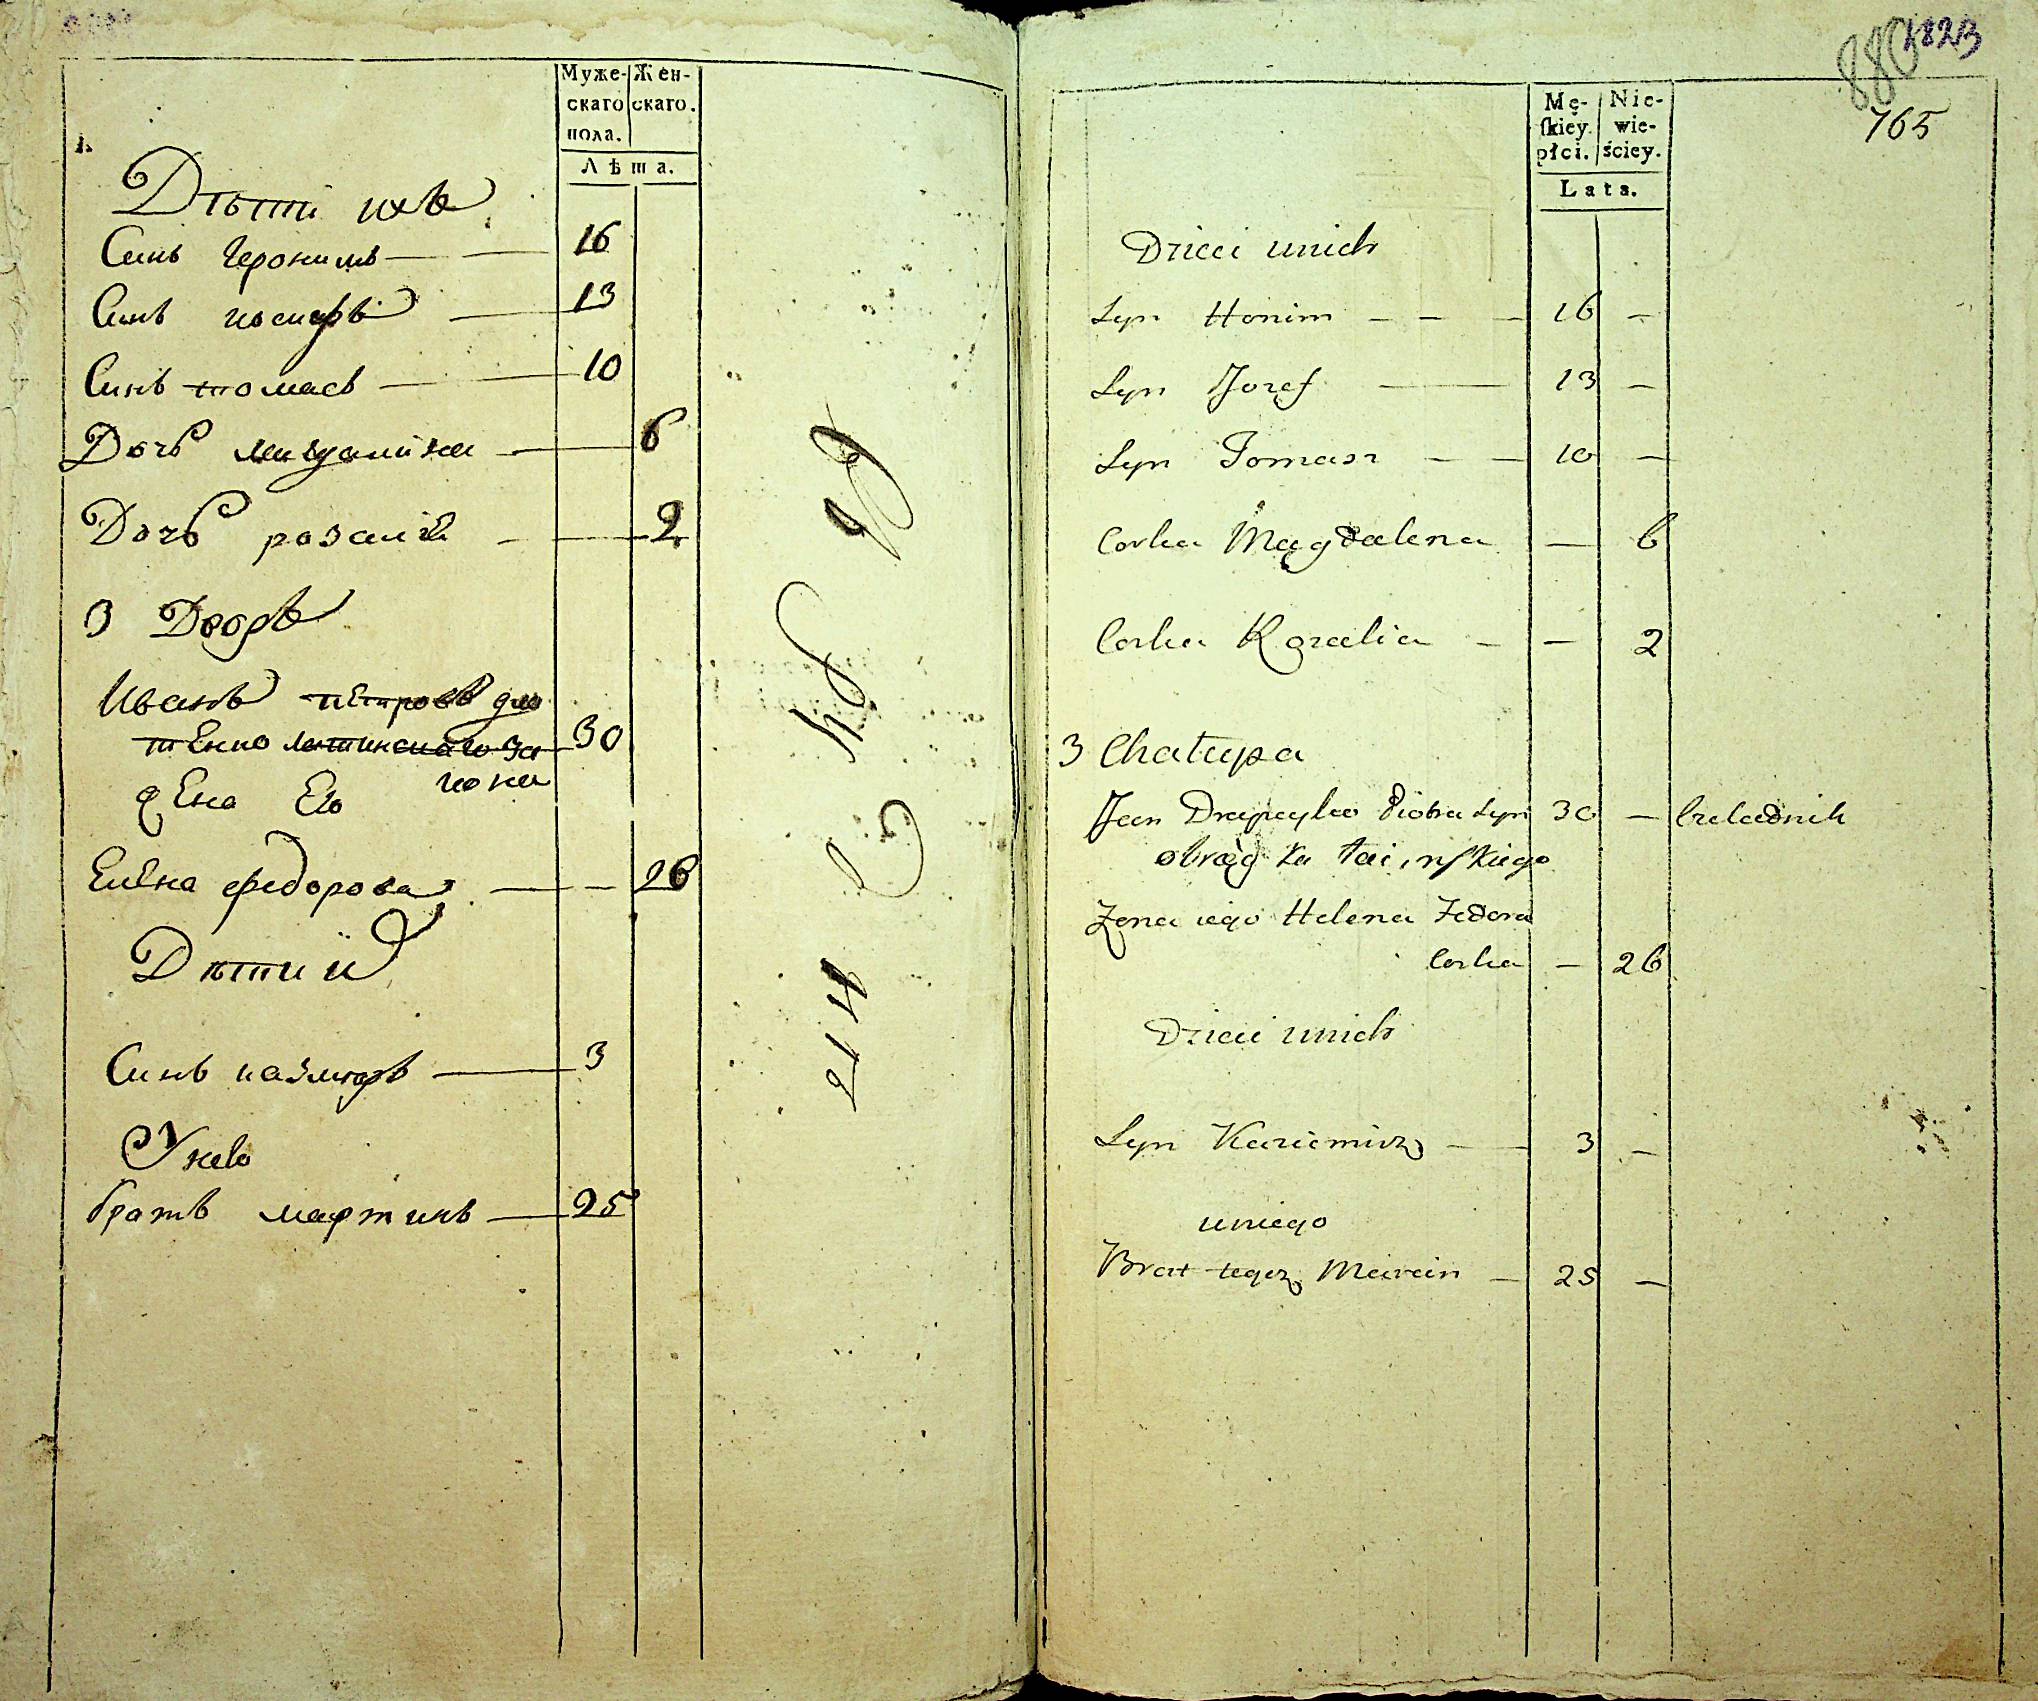 Муже-
скаго
пола.
Жен-
скаго.
Лѣта.
Дѣти ихъ
Синъ Іеронимъ 16
Синъ иосифъ 13
Синъ томасъ 10
Дочь 6
Дочь розалія 2
3 Дворъ
Иванъ петровъ
латинскаго за 30
кона
жена Его
Елена федорова 26
Дѣти
Синъ казмиръ 3
У нево
братъ мартинъ 25
1823
880
765
Mę-
ſkiey
płci.
Nie-
wie-
ściey.
Lata.
Dzieci unich
Syn Honim 16 -
Syn Jozef 13 -
Syn Tomasz 10 -
Corka Magdalena - 6
Corka Rozalia - 2
3 Chałupa
Jan Piotra Syn 30 - Czeladnik
obrządka łacinſkiego
Zona iego Helena Fedora
Corka - 26
Dzieci unich
Syn Kazimirz 3 -
uniego
Brat tegoz Marcin 25 -